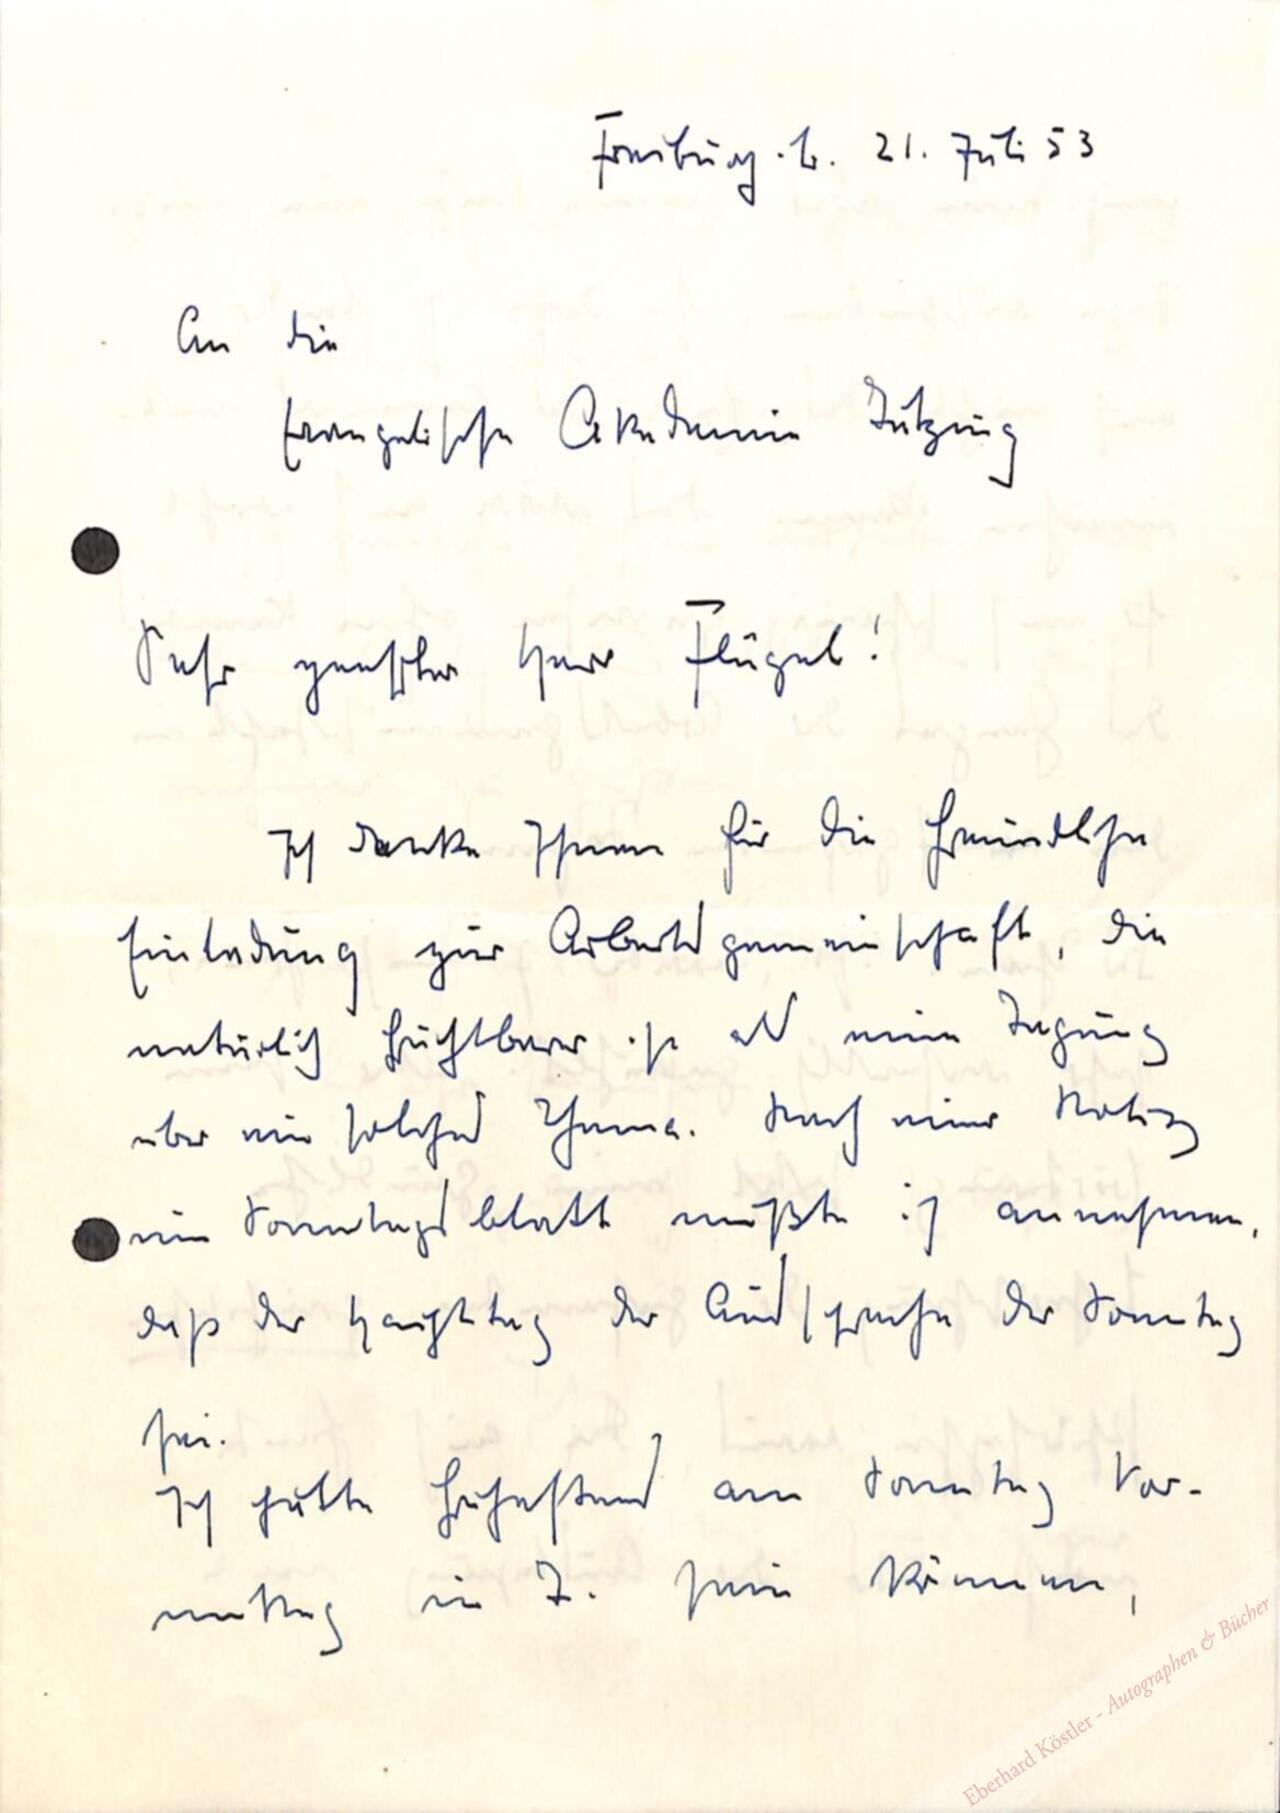 Freiburg i. Br. 21. Juli 53
An die
Evangelische Akademie Tutzing
Sehr geehrter Herr Flügel!
Ich danke Ihnen für die freundliche
Einladung zur Arbeitsgemeinschaft, die
natürlich fruchtbarer ist als eine Tagung
über ein solches Thema. Nach einer Notiz
im Sonntagsblatt müßte ich annehmen,
daß der Haupttag der Aussprache der Sonntag
sei.
Ich hätte frühestens am Sonntag Vor-
mittag in T. sein können,
Eberhard Köstler - Autographen & Bücher